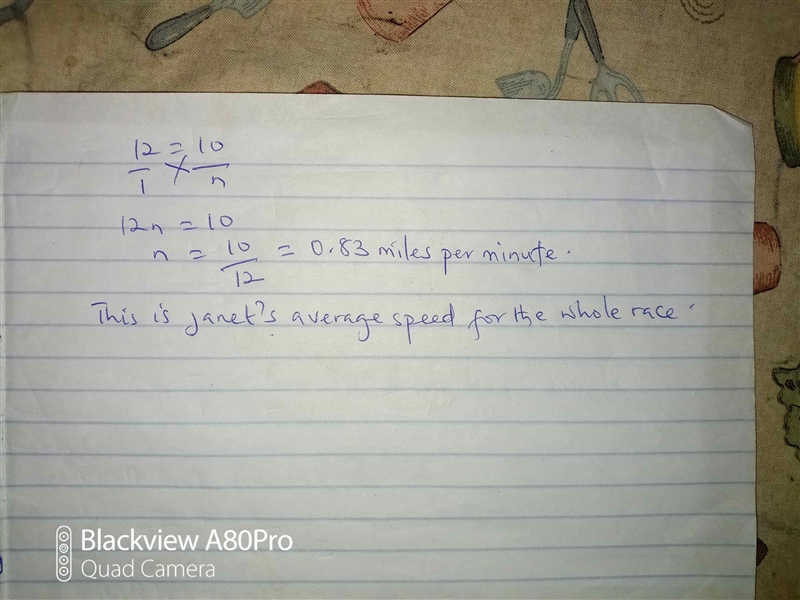 12 = 10
1 n
12n = 10
n = 10 = 0.83 miles per minute.
12
This is Janet's average speed for the whole race.
Blackview A80Pro
Quad Camera